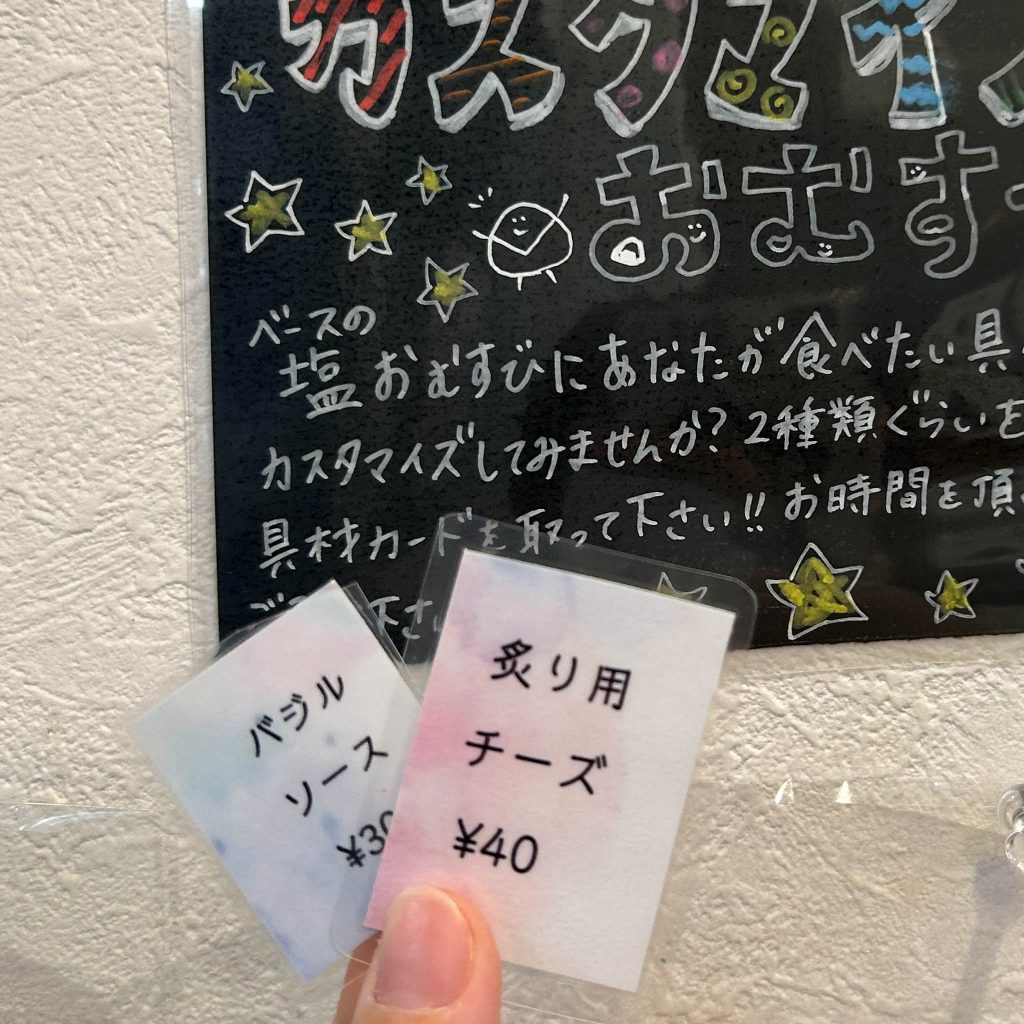 カスタマイ
おむす
ベースの
塩おむすびにあなたが食べたい具
カスタマイズしてみませんか?2種類ぐらいを
具材カードを取って下さい!!お時間を頂
下さい
バジル
ソース
¥30
炙り用
チーズ
¥40